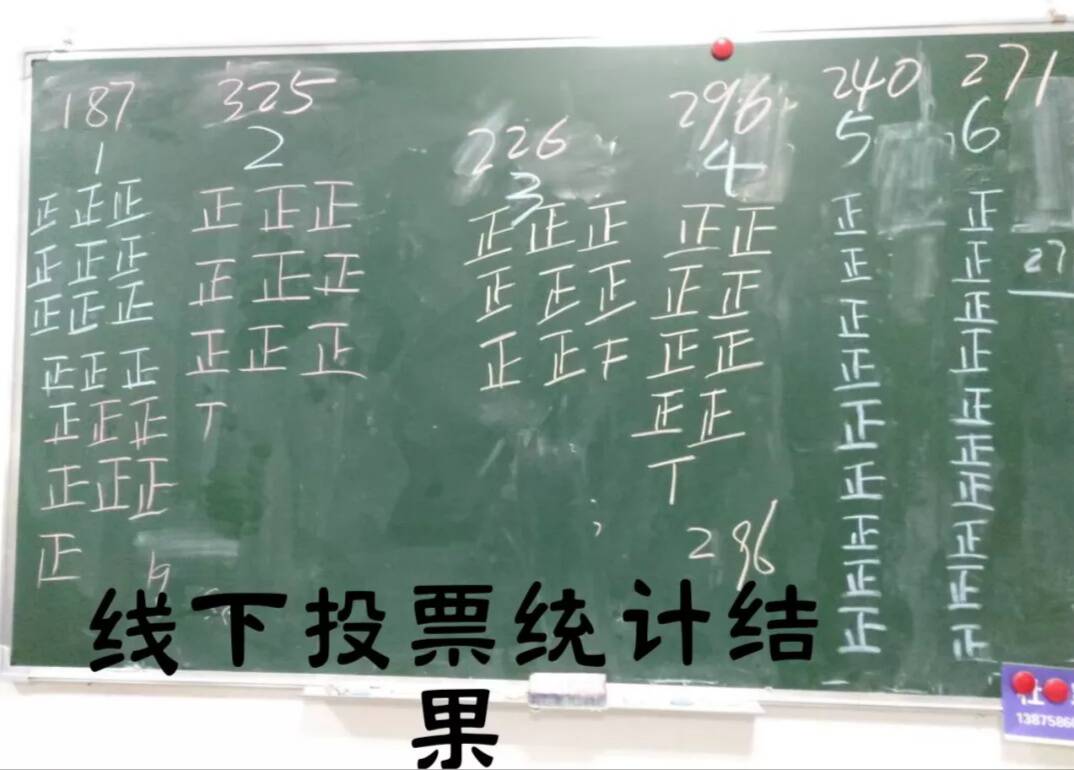 187 325 226 296 240 271
1 2 3 4 5 6
正正正 正正正 正正正 正正 正 正
正正正 正正正 正正正 正正 正 正
正正正 正正正 正正 正正 正 正
正正正 正正 正 正
正正正 正 正
正正正 正 正
正 正 正
正 正
正 正
正
296
27
线下投票统计结
果
1387586